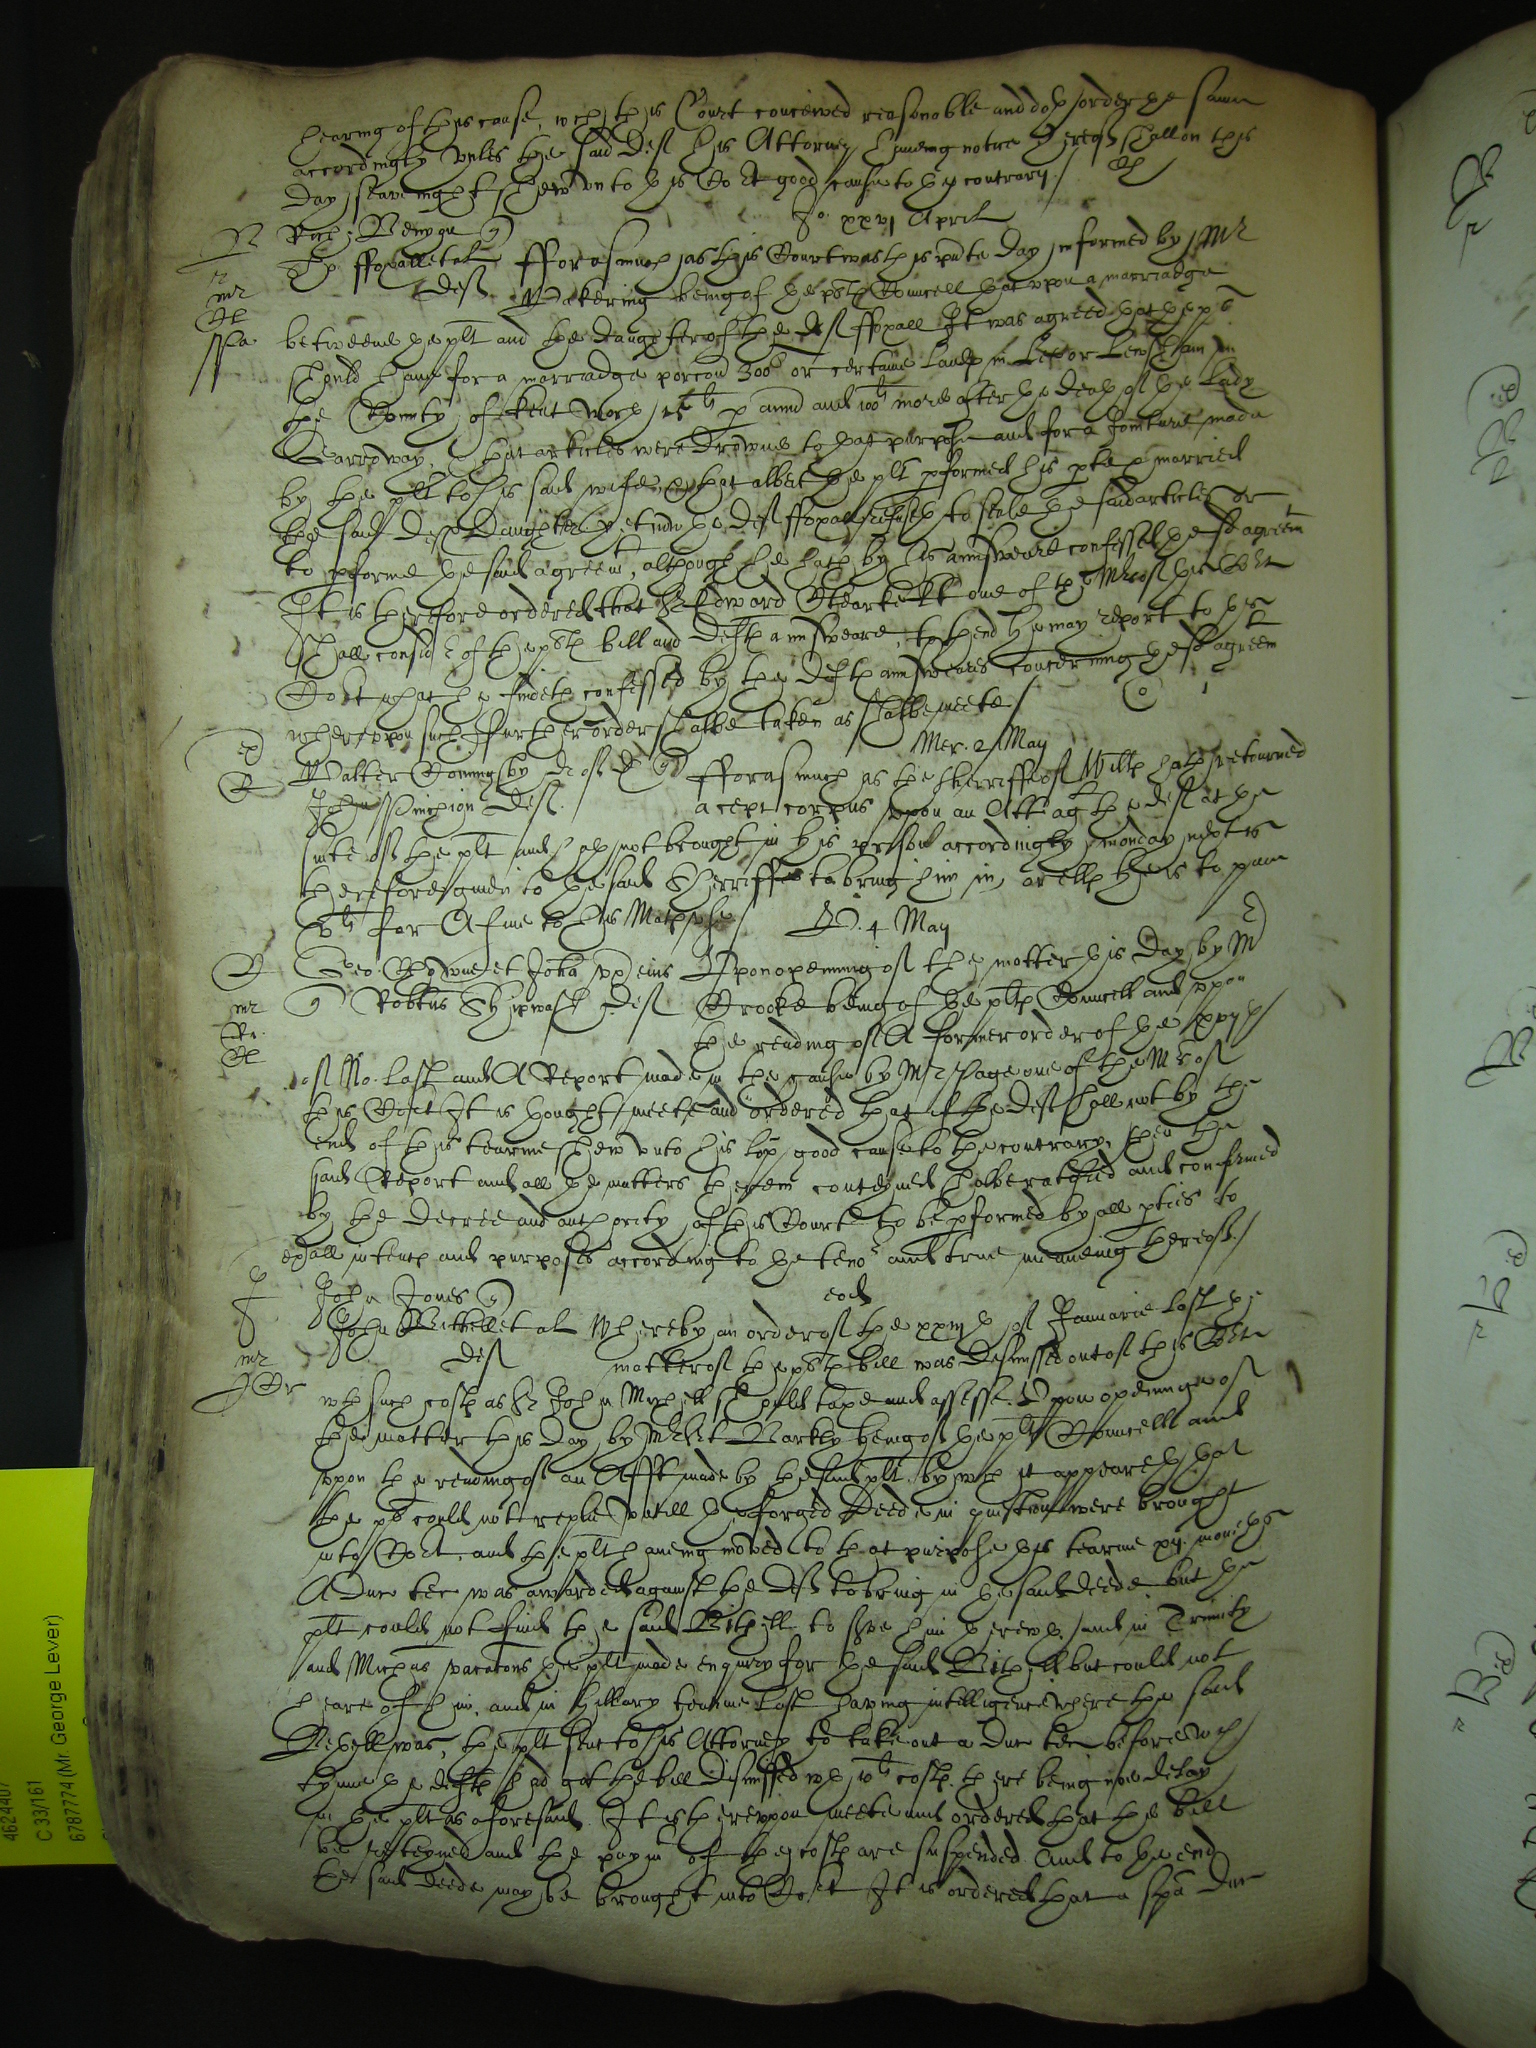 hearing of this cause, wch this Court conceived reasonable and doth order the same
accordingly vnles the said Deft his Attorney haueing notice hereof shall on this
day seavenight shew vnto this Cort good cause to the contrary.
Jo. xxvj Aprill
Rich: q
ffoxall et al fforasmuch as this Court was this pnte day informed by Mr
deft Pakering being of the plts Councell that vpon a marriadge
betweene the plt and the daughter of the deft ffoxall It was agreed that the plt
should haue for a marriadge porcon 300l or certaine lands in Lee or Lewsham in
the County of Kent worth p annu and 100l more after the death of the Lady
Garroway, that articles were drawne to that purpose and for a Joincture made
by the plt to his said wife, that albeit the plt pformed his pte & married
the said defts Daughter yet now the deft ffoxall refuseth to seale the said articles or
to pforme the said agreemt, although he hath by his aunsweare confessed the sd agreemt
It is therefore ordered that Sr Edward one of the Mrs of this Cort
shall consider of the plts bill and defts aunsweare, to thend he may report to this
Cort what he findeth confessed by the defts aunsweare concerning the sd agreemt
wherevpon such further order shalbe taken as shalbe meete
Mer. 2 May
Walter Coningsby q fforasmuch as the Sherriffe of Wilts hath retourned
John deft. a cepi corpus vpon an Att agt the deft at the
suite of the plt and hath not brought in his prison accordingly monday next is
therefore given to the said Sherriffe to bring him in, or ells he is to paie
vl for A fine to his Mats vse
V. 4 May
Geo: Browne et Joha vx eius Vpon opening of the matter this day by Mr
q Robtus Shipwash deft Crooke being of the plts Councell and vpon
the reading of A former order of the xxijth
of No. last and A Report made in the cause by Mr Page one of the Mrs of
this Cort It is thought meete and ordered that if the deft shall not by the
end of this tearme shew vnto this Cort good cause to the contrary, then the
said Report and all the matters therein conteyned shalbe ratified and confirmed
by the decree and authority of this Court to be pformed by all pties to
all intents and purposes according to the tenor and true meaneing thereof.
John Jones q eod
John Bithell et al Whereby an order of the xxiijth of Januarie last the
deft matter of the plts bill was dismissed out of this Cort
wth such costs as Sr John Michell should taxe and assesse. Vpon opening of
the matter this day by Mr Barkly being of the plts Councell and
vpon the reading of an Afft made by the said plt, by wch it appeareth that
the plt could not replie vntill the forged deede in question were brought
into Cort, and the plt haueing moved to that purpose this tearme xij moneths
A Duc tec was awarded against the deft to bring in the said deede but the
plt could not find the said Bithell to serve him therewth, and in Trinity
and Michas vacacons the plt made enquiry for the said Bithell but could not
heare of him, and in Hillary tearme last having intelligence where the said
Bithell was, the plt sent to his Attorney to take out a Duc tec before wch
tyme the defts had got the bill dismissed wth vl costs, there being noe delay
in the plt as aforesaid. It is therevpon meete and ordered that the bill
be reteyned and the paymt of the costs are suspended. And to the end
the said deede may be brought into Cort It is ordered that a spa Duc
4624407
C 33/161
6787774 (Mr George Lever)